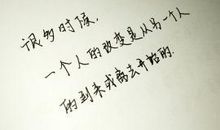 很多时候，
一个人的改变是从另一个人
的到来或离去开始的.